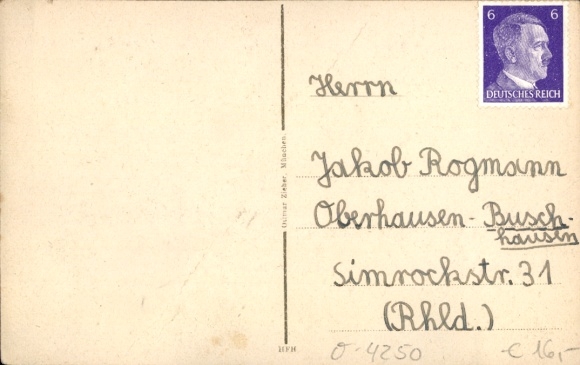 6 6
DEUTSCHES REICH
Herrn
Jakob Rogmann
Oberhausen-Busch-
hausen
Simrockstr. 31
(Rhld.)
Ottmar Zieher, München.
HFH
0-4250
€ 16,-